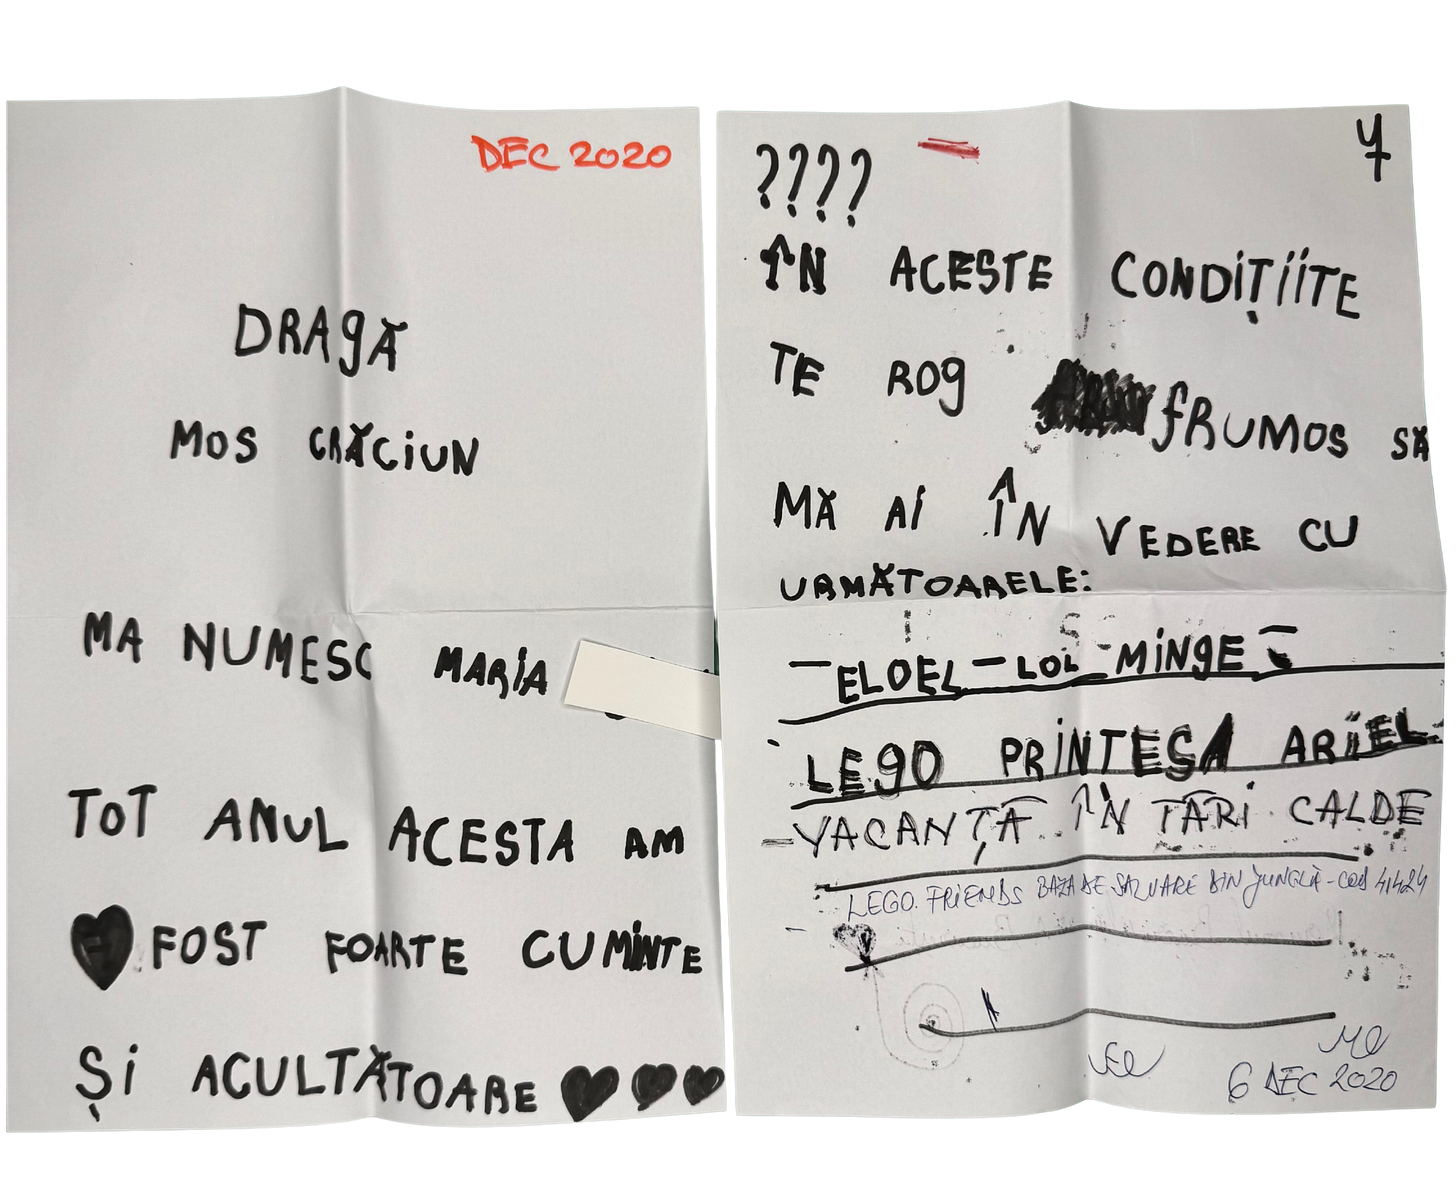 DEC 2020
DRAGĂ
MOS CRĂCIUN
MA NUMESC MARIA
TOT ANUL ACESTA AM
FOST FOARTE CUMINTE
ȘI ACULTĂTOARE
????
ÎN ACESTE CONDIȚIITE
TE ROG FRUMOS SĂ
MĂ AI ÎN VEDERE CU
URMĂTOARELE:
- ELOEL - LOL - MINGE -
LEGO PRINTESA ARIEL
- VACANȚĂ ÎN TĂRI CALDE
LEGO. FRIENDS BAZA DE SALVARE DIN JUNGLĂ - COD 41424
6 DEC 2020